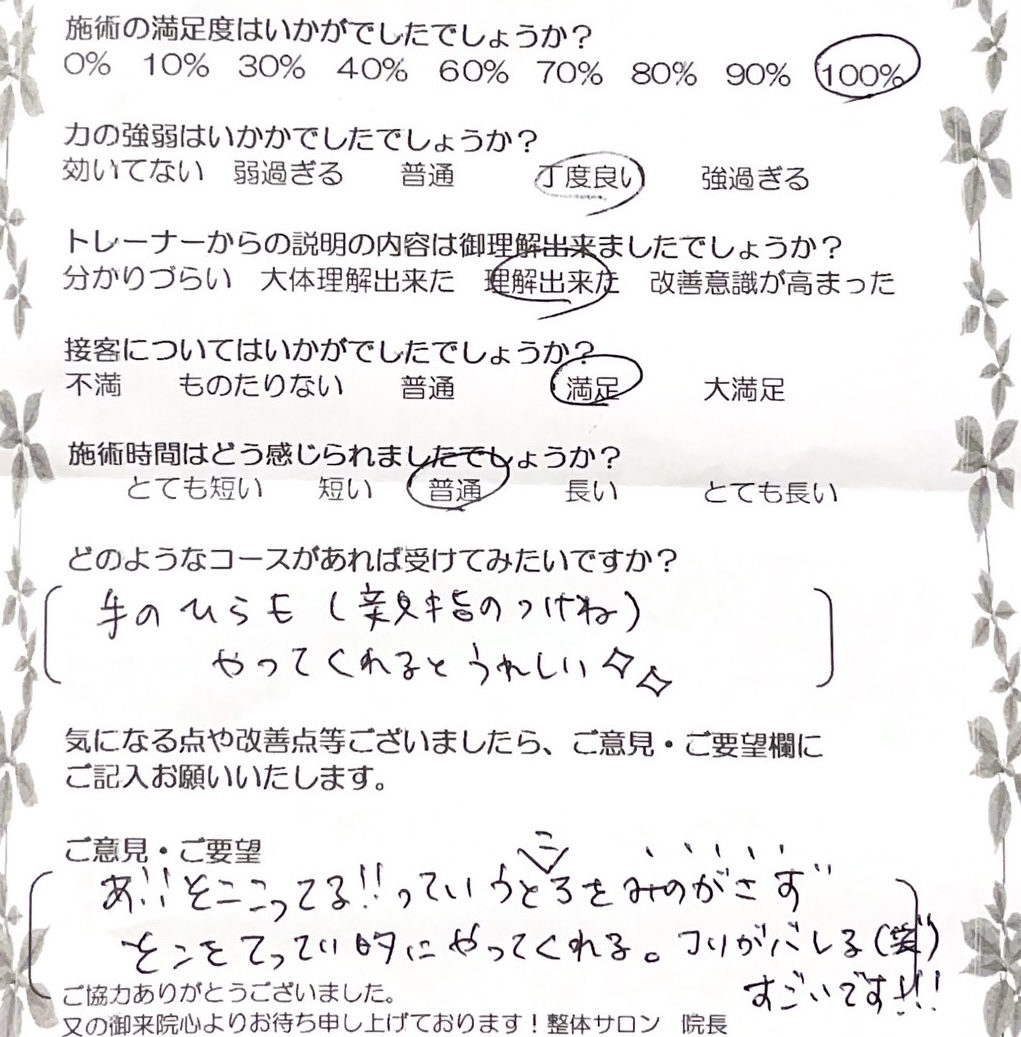 施術の満足度はいかがでしたでしょうか？
0% 10% 30% 40% 60% 70% 80% 90% 100%
力の強弱はいかかでしたでしょうか？
効いてない 弱過ぎる 普通 丁度良い 強過ぎる
トレーナーからの説明の内容は御理解出来ましたでしょうか？
分かりづらい 大体理解出来た 理解出来た 改善意識が高まった
接客についてはいかがでしたでしょうか？
不満 ものたりない 普通 満足 大満足
施術時間はどう感じられましたでしょうか？
とても短い 短い 普通 長い とても長い
どのようなコースがあれば受けてみたいですか？
手のひらも（親指のつけね）
やってくれるとうれしい
気になる点や改善点等ございましたら、ご意見・ご要望欄に
ご記入お願いいたします。
ご意見・ご要望
あ!!そここってる!!っていうところをみのがさず
そこをてってい的にやってくれる。コリがバレる(笑)
すごいです!!!
ご協力ありがとうございました。
又の御来院心よりお待ち申し上げております！整体サロン 院長